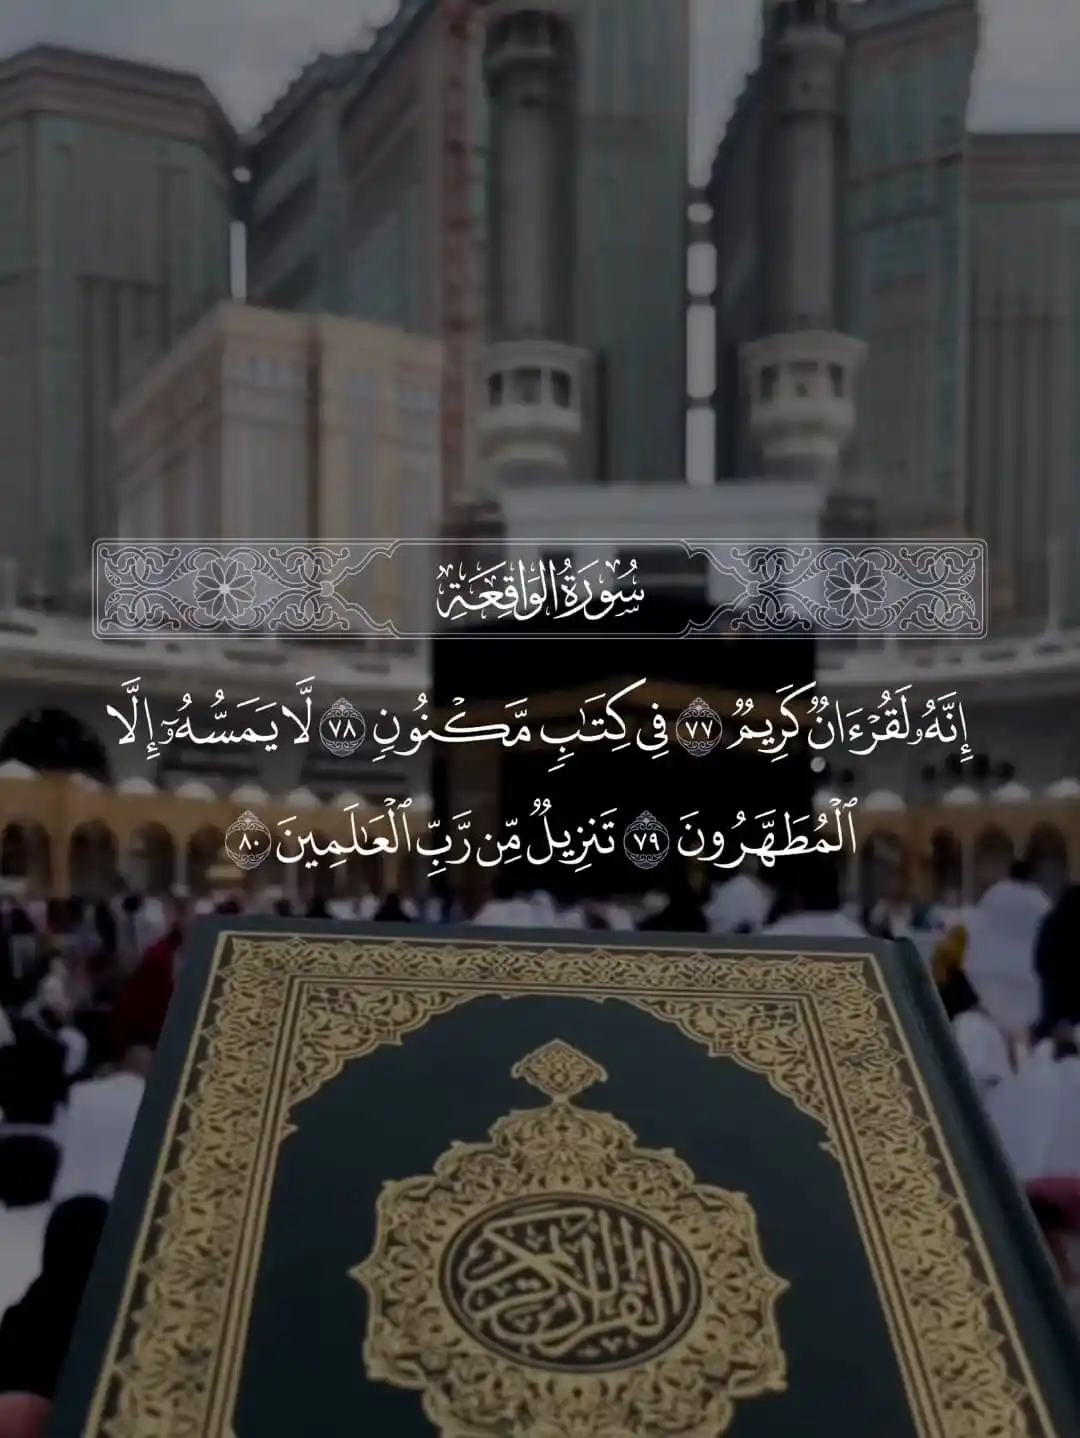 سُورَةُ الوَاقِعَةِ
إِنَّهُۥ لَقُرْءَانٌ كَرِيمٌ ٧٧ فِي كِتَٰبٍ مَّكْنُونٍ ٧٨ لَّا يَمَسُّهُۥٓ إِلَّا
ٱلْمُطَهَّرُونَ ٧٩ تَنزِيلٌ مِّن رَّبِّ ٱلْعَٰلَمِينَ ٨٠
القرآن الكريم